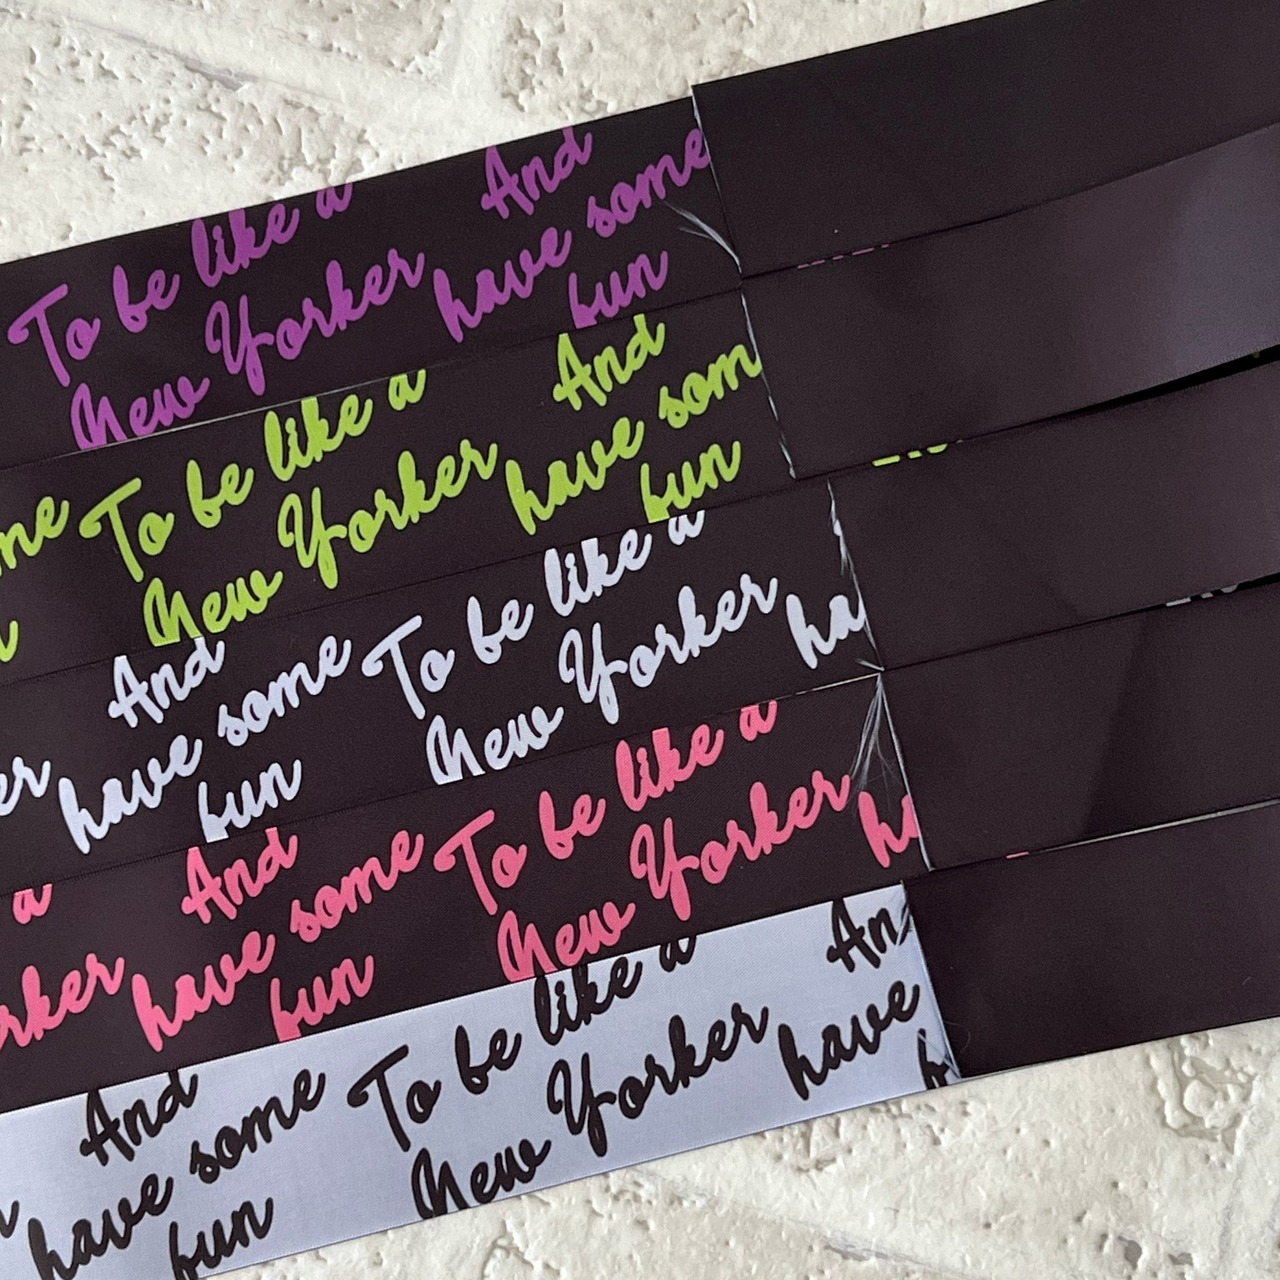 To be like a And
New Yorker have some
fun
me To be like a And
New Yorker have som
fun
And To be like a
er have some New Yorker ha
fun
a And To be like a
rker have some New Yorker ha
fun
And To be like a An
have some New Yorker have
fun